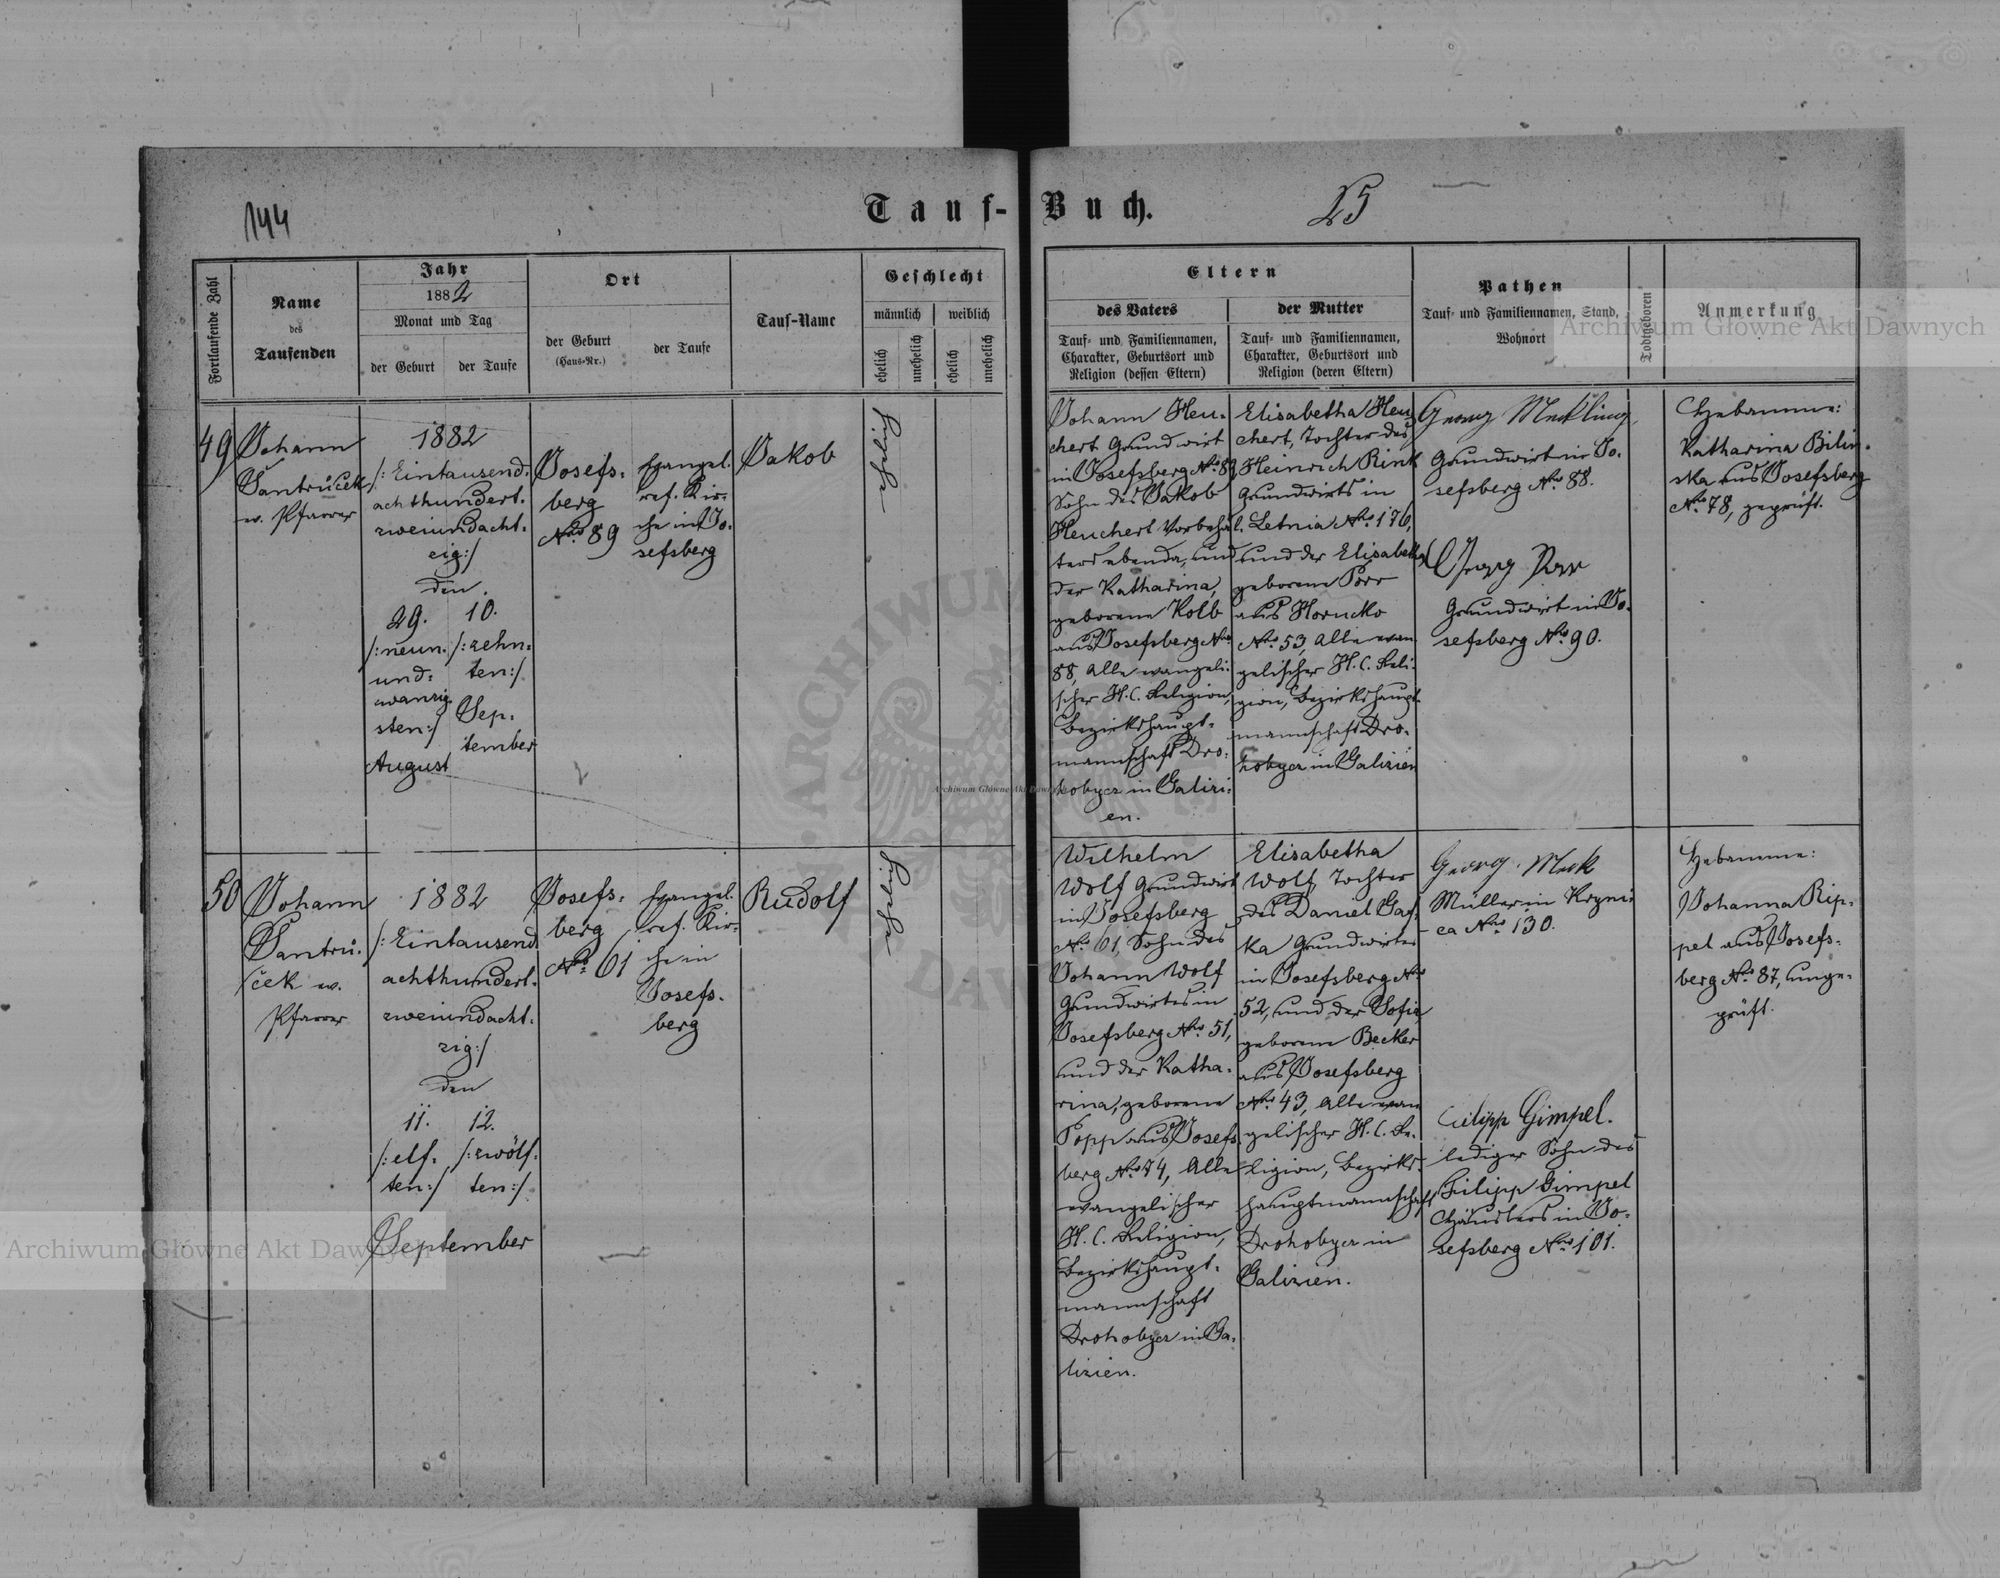 144
Tauf-Buch.
25
Fortlaufende Zahl
Name
des
Taufenden
Jahr
1882
Monat und Tag
der Geburt
der Taufe
Ort
der Geburt
(Haus-Nr.)
der Taufe
Tauf-Name
Geschlecht
männlich
weiblich
ehelich
unehelich
ehelich
unehelich
Eltern
des Vaters
Tauf- und Familiennamen,
Charakter, Geburtsort und
Religion (dessen Eltern)
der Mutter
Tauf- und Familiennamen,
Charakter, Geburtsort und
Religion (deren Eltern)
Pathen
Tauf- und Familiennamen, Stand,
Wohnort
Todtgeboren
Anmerkung
Archiwum Główne Akt Dawnych
49
Johann
Jantrůček
ev. Pfarrer
1882
/: Eintausend-
achthundert-
zweiundacht-
zig :/
den
29.
/: neun-
und-
zwanzig-
sten :/
August
10.
/: zehn-
ten :/
Sep-
tember
Josefs-
berg
Nro 89
Evangel.
ref. Kir-
che in Jo-
sefsberg
Jakob
Johann Heu-
chert Grundwirt
in Josefsberg Nro 89
Sohn des Jakob
Heuchert Vorbehäl-
ters ebenda, und
der Katharina,
geborene Kolb
aus Josefsberg Nro
88, Alle evangeli-
scher H. C. Religion,
Bezirkshaupt-
mannschaft Dro-
hobycz in Galizi-
en.
Elisabetha Heu-
chert, Tochter des
Heinrich Rink
Grundwirts in
Letnia Nro 176,
und der Elisabetha
geborene Porr
aus Horucko
Nro 53, Alle evan-
gelischer H. C. Reli-
gion, Bezirkshaupt-
mannschaft Dro-
hobycz in Galizien
Georg Meckling
Grundwirt in Jo-
sefsberg Nro 88.
Georg Porr
Grundwirt in Jo-
sefsberg Nro 90.
Hebamme:
Katharina Bilin-
ska aus Josefsberg
Nro 78, geprüft.
ARCHIWUM
Archiwum Główne Akt Dawnych
50
Johann
Jantrů-
ček ev.
Pfarrer
1882
/: Eintausend-
achthundert-
zweiundacht-
zig :/
den
11.
/: elf-
ten :/
12.
/: zwölf-
ten :/
September
Josefs-
berg
Nro 61
Evangel.
ref. Kir-
che in
Josefs-
berg
Rudolf
Wilhelm
Wolf Grundwirt
in Josefsberg
Nro 61, Sohn des
Johann Wolf
Grundwirtes in
Josefsberg Nro 51,
und der Katha-
rina, geborene
Popp aus Josefs-
berg Nro 74, Alle
evangelischer
H. C. Religion,
Bezirkshaupt-
mannschaft
Drohobycz in Ga-
lizien.
Elisabetha
Wolf, Tochter
des Daniel Gaf-
ka Grundwirtes
in Josefsberg Nro
52, und der Sofia,
geborene Becker
aus Josefsberg
Nro 43, Alle evan-
gelischer H. C. Re-
ligion, Bezirks-
hauptmannschaft
Drohobycz in
Galizien.
Georg Meck
Müller in Kryni-
ca Nro 130.
Filipp Gimpel.
lediger Sohn des
Filipp Gimpel
Häuslers in Jo-
sefsberg Nro 101.
Hebamme:
Johanna Rip-
pel aus Josefs-
berg Nro 87, unge-
prüft.
Archiwum Główne Akt Dawnych